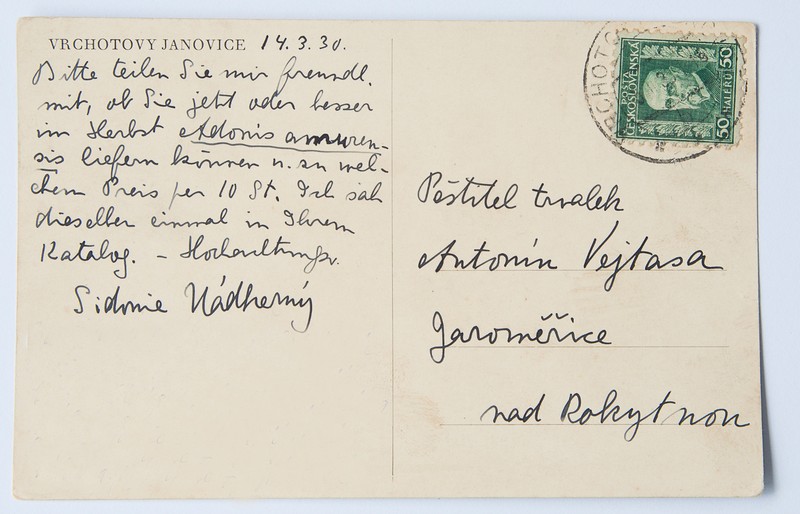 VRCHOTOVY JANOVICE 14.3.30.
Bitte teilen Sie mir freundl.
mit, ob Sie jetzt oder besser
im Herbst Adonis amuren-
sis liefern können u. zu wel-
chem Preis per 10 St. Ich sah
dieselben einmal in Ihrem
Katalog. – Hochachtungsv.
Sidonie Nádherný
VRCHOTO
POŠTA
ČESKOSLOVENSKÁ
50 HALÉŘŮ 50
Pěstitel trvalek
Antonín Vejtasa
Jaroměřice
nad Rokytnou